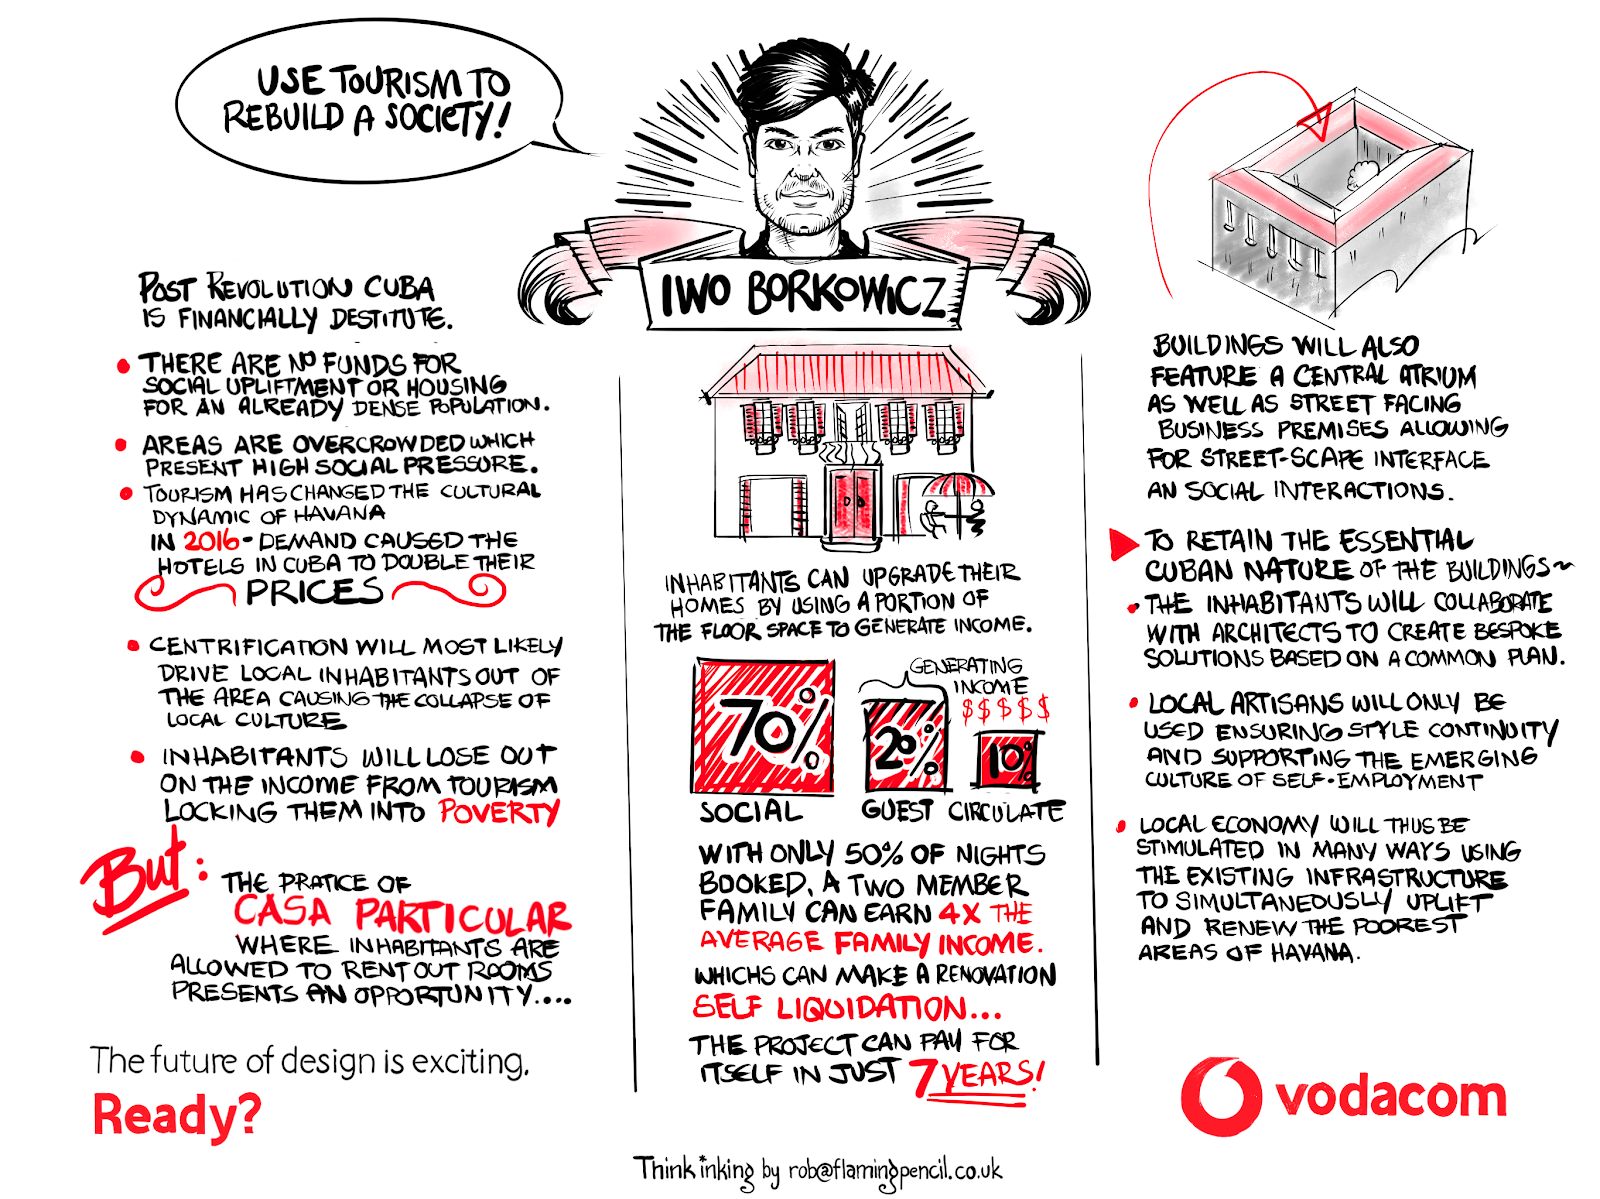 USE TOURISM TO
REBUILD A SOCIETY!
IWO BORKOWICZ
POST REVOLUTION CUBA
IS FINANCIALLY DESTITUTE.
• THERE ARE NO FUNDS FOR
SOCIAL UPLIFTMENT OR HOUSING
FOR AN ALREADY DENSE POPULATION.
• AREAS ARE OVERCROWDED WHICH
PRESENT HIGH SOCIAL PRESSURE.
• TOURISM HAS CHANGED THE CULTURAL
DYNAMIC OF HAVANA
IN 2016 - DEMAND CAUSED THE
HOTELS IN CUBA TO DOUBLE THEIR
PRICES
• CENTRIFICATION WILL MOST LIKELY
DRIVE LOCAL INHABITANTS OUT OF
THE AREA CAUSING THE COLLAPSE OF
LOCAL CULTURE
• INHABITANTS WILL LOSE OUT
ON THE INCOME FROM TOURISM
LOCKING THEM INTO POVERTY
BUT:
THE PRATICE OF
CASA PARTICULAR
WHERE INHABITANTS ARE
ALLOWED TO RENT OUT ROOMS
PRESENTS AN OPPORTUNITY....
The future of design is exciting.
Ready?
INHABITANTS CAN UPGRADE THEIR
HOMES BY USING A PORTION OF
THE FLOOR SPACE TO GENERATE INCOME.
GENERATING
INCOME
$$$$$
70% 20% 10%
SOCIAL GUEST CIRCULATE
WITH ONLY 50% OF NIGHTS
BOOKED, A TWO MEMBER
FAMILY CAN EARN 4X THE
AVERAGE FAMILY INCOME.
WHICHS CAN MAKE A RENOVATION
SELF LIQUIDATION...
THE PROJECT CAN PAY FOR
ITSELF IN JUST 7 YEARS!
BUILDINGS WILL ALSO
FEATURE A CENTRAL ATRIUM
AS WELL AS STREET FACING
BUSINESS PREMISES ALLOWING
FOR STREET-SCAPE INTERFACE
AN SOCIAL INTERACTIONS.
TO RETAIN THE ESSENTIAL
CUBAN NATURE OF THE BUILDINGS~
• THE INHABITANTS WILL COLLABORATE
WITH ARCHITECTS TO CREATE BESPOKE
SOLUTIONS BASED ON A COMMON PLAN.
• LOCAL ARTISANS WILL ONLY BE
USED ENSURING STYLE CONTINUITY
AND SUPPORTING THE EMERGING
CULTURE OF SELF-EMPLOYMENT
• LOCAL ECONOMY WILL THUS BE
STIMULATED IN MANY WAYS USING
THE EXISTING INFRASTRUCTURE
TO SIMULTANEOUSLY UPLIFT
AND RENEW THE POOREST
AREAS OF HAVANA.
vodacom
Think*inking by rob@flamingpencil.co.uk